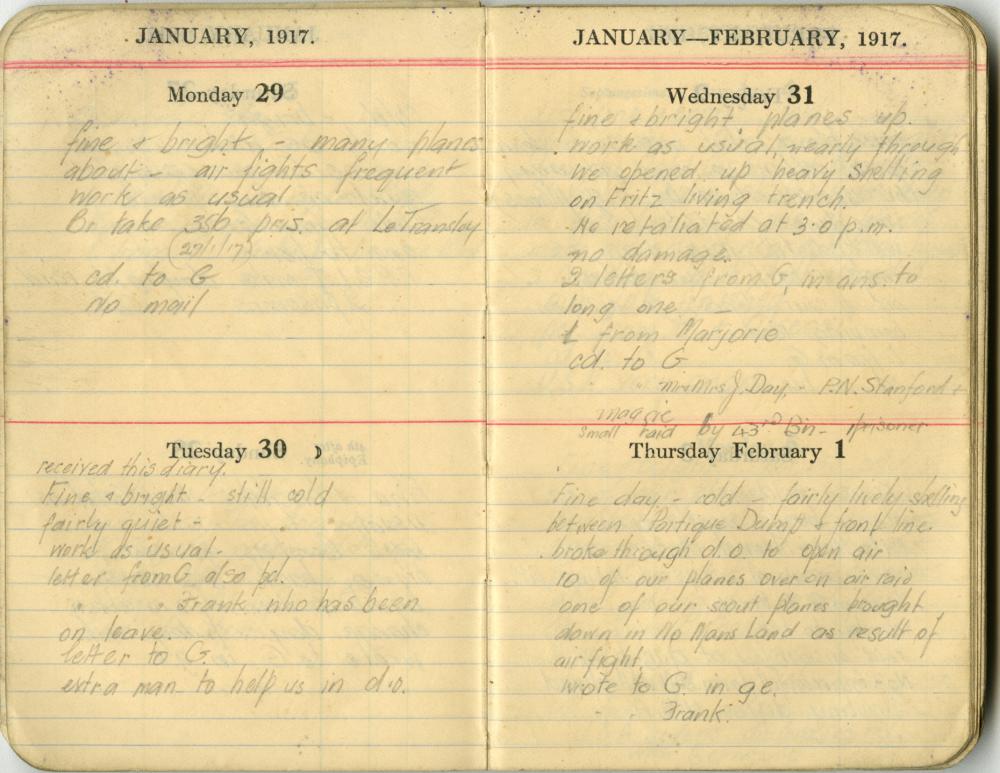 JANUARY, 1917.
Monday 29
fine & bright, - many planes
about - air fights frequent
work as usual
Br take 350 pris. at LeTransloy
(27/1/17)
cd. to G
No mail
Tuesday 30
received this diary.
Fine & bright - still cold
fairly quiet -
work as usual.
letter from G also pd.
" " Frank who has been
on leave.
letter to G.
extra man to help us in d.o.
JANUARY—FEBRUARY, 1917.
Wednesday 31
fine & bright, planes up.
work as usual, nearly through
We opened up heavy shelling
on Fritz living trench.
He retaliated at 3.0 p.m.
no damage.
3 letters from G, in ans. to
long one
1 from Marjorie
cd. to G
" Mr & Mrs J. Day, - P.N. Stanford +
maggie
small raid by 43rd Bn - 1 prisoner
Thursday February 1
Fine day - cold - fairly lively shelling
between Dump & front line.
broke through d.o. to open air
10 of our planes over on air raid
one of our scout planes brought
down in No Mans Land as result of
air fight.
wrote to G. in g.e.
" " Frank.